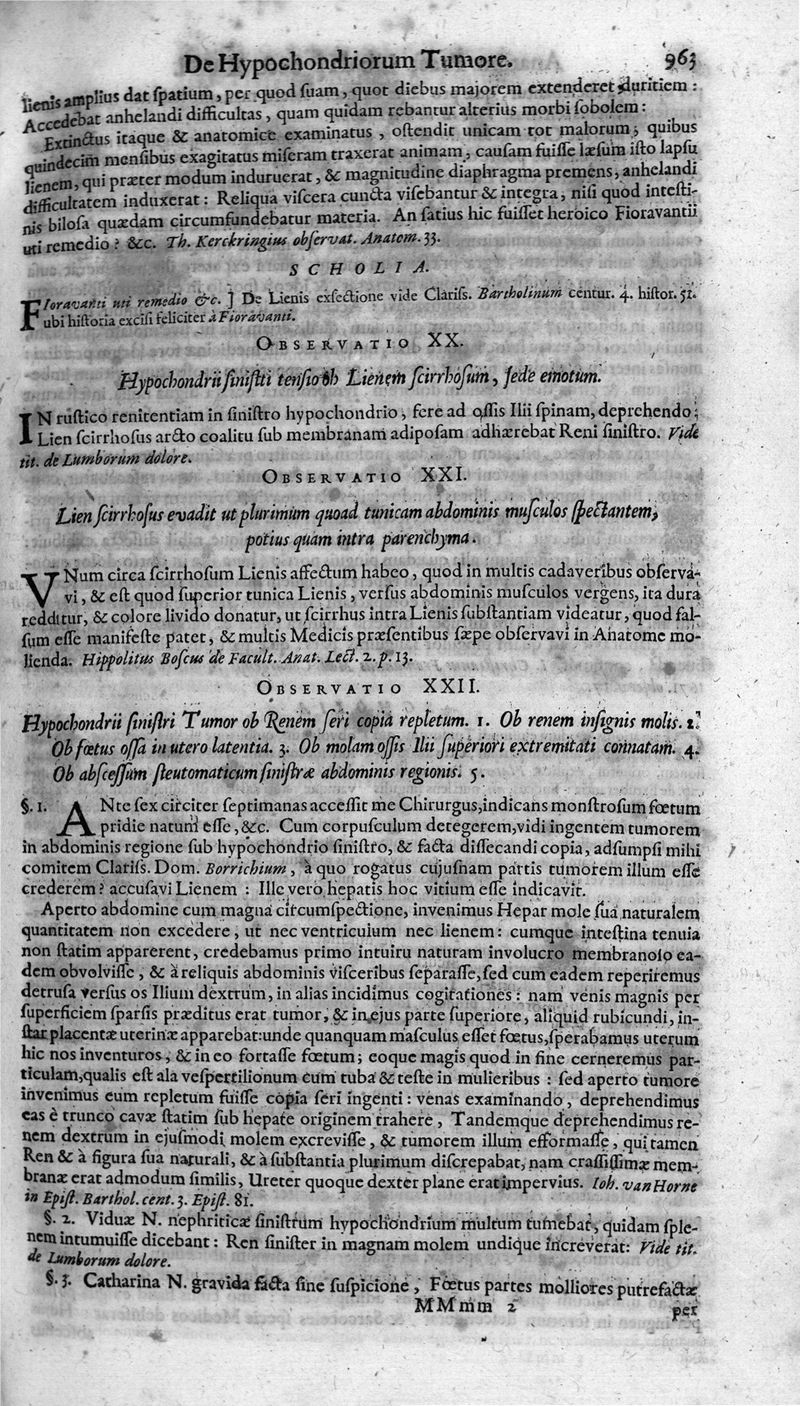 De Hypochondriorum Tumore. 963
lienis amplius dat ſpatium, per quod ſuam, quot diebus majorem extenderet duritiem :
Accedebat anhelandi difficultas, quam quidam rebantur alterius morbi ſobolem :
Extinctus itaque & anatomice examinatus, oſtendit unicam tot malorum, quibus
quindecim menſibus exagitatus miſeram traxerat animam, cauſam fuiſſe læſum iſto lapſu
lienem, qui præter modum induruerat, & magnitudine diaphragma premens, anhelandi
difficultatem induxerat : Reliqua viſcera cuncta viſebantur & integra, niſi quod inteſti-
nis biloſa quædam circumfundebatur materia. An ſatius hic fuiſſet heroico Fioravantii
uti remedio ? &c. Th. Kerckringius obſervat. Anatom. 33.
SCHOLIA.
Fioravanti uti remedio &c. ] De Lienis exſectione vide Clariſs. Bartholinum centur. 4. hiſtor. 51.
ubi hiſtoria exciſi feliciter à Fioravanti.
OBSERVATIO XX.
Hypochondrii ſiniſtri tenſio ob Lienem ſcirrhoſum, ſede emotum.
IN ruſtico renitentiam in ſiniſtro hypochondrio, fere ad oſſis Ilii ſpinam, deprehendo ;
Lien ſcirrhoſus arcto coalitu ſub membranam adipoſam adhærebat Reni ſiniſtro. Vide
tit. de Lumborum dolore.
OBSERVATIO XXI.
Lien ſcirrhoſus evadit ut plurimum quoad tunicam abdominis muſculos ſpectantem,
potius quam intra parenchyma.
VNum circa ſcirrhoſum Lienis affectum habeo, quod in multis cadaveribus obſerva-
vi, & eſt quod ſuperior tunica Lienis, verſus abdominis muſculos vergens, ita dura
redditur, & colore livido donatur, ut ſcirrhus intra Lienis ſubſtantiam videatur, quod fal-
ſum eſſe manifeſte patet, & multis Medicis præſentibus ſæpe obſervavi in Anatome mo-
lienda. Hippolitus Boſcus de Facult. Anat. Lect. 2. p. 13.
OBSERVATIO XXII.
Hypochondrii ſiniſtri Tumor ob Renem ſeri copia repletum. 1. Ob renem inſignis molis. 2.
Ob fœtus oſſa in utero latentia. 3. Ob molam oſſis Ilii ſuperiori extremitati connatam. 4.
Ob abſceſſum ſteutomaticum ſiniſtræ abdominis regionis. 5.
§. 1. ANte ſex circiter ſeptimanas acceſſit me Chirurgus, indicans monſtroſum fœtum
pridie natum eſſe, &c. Cum corpuſculum detegerem, vidi ingentem tumorem
in abdominis regione ſub hypochondrio ſiniſtro, & facta diſſecandi copia, adſumpſi mihi
comitem Clariſs. Dom. Borrichium, à quo rogatus cujuſnam partis tumorem illum eſſe
crederem ? accuſavi Lienem : Ille vero hepatis hoc vitium eſſe indicavit.
Aperto abdomine cum magna circumſpectione, invenimus Hepar mole ſua naturalem
quantitatem non excedere, ut nec ventriculum nec lienem : cumque inteſtina tenuia
non ſtatim apparerent, credebamus primo intuitu naturam involucro membranoſo ea-
dem obvolviſſe, & à reliquis abdominis viſceribus ſeparaſſe, ſed cum eadem reperiremus
detruſa verſus os Ilium dextrum, in alias incidimus cogitationes : nam venis magnis per
ſuperficiem ſparſis præditus erat tumor, & in ejus parte ſuperiore, aliquid rubicundi, in-
ſtar placentæ uterinæ apparebat: unde quanquam maſculus eſſet fœtus, ſperabamus uterum
hic nos inventuros, & in eo fortaſſe fœtum ; eoque magis quod in fine cerneremus par-
ticulam, qualis eſt ala veſpertilionum cum tuba & teſte in mulieribus : ſed aperto tumore
invenimus eum repletum fuiſſe copia ſeri ingenti : venas examinando, deprehendimus
eas è trunco cavæ ſtatim ſub hepate originem trahere, Tandemque deprehendimus re-
nem dextrum in ejuſmodi molem excreviſſe, & tumorem illum efformaſſe, qui tamen
Ren & à figura ſua naturali, & à ſubſtantia plurimum diſcrepabat, nam craſſiſſimæ mem-
branæ erat admodum ſimilis, Ureter quoque dexter plane erat impervius. Ioh. van Horne
in Epiſt. Barthol. cent. 3. Epiſt. 81.
§. 2. Viduæ N. nephriticæ ſiniſtrum hypochondrium multum tumebat, quidam ſple-
nem intumuiſſe dicebant : Ren ſiniſter in magnam molem undique increverat: Vide tit.
de Lumborum dolore.
§. 3. Catharina N. gravida facta ſine ſuſpicione, Fœtus partes molliores putrefactæ
MMmm 2 per